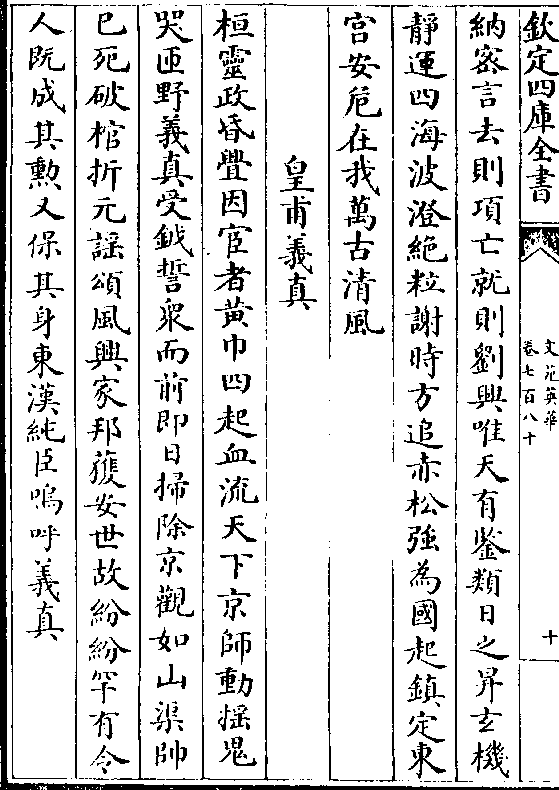 欽定四庫全書
文苑英華
卷七百八十
十
納宻言去則項亡就則劉興唯天有鉴類日之昇玄機
靜運四海波澄絶粒謝時方追赤松強為國起鎮定東
宫安危在我萬古清風
皇甫義真
桓靈政昏舋因宦者黄巾四起血流天下京師動揺鬼
哭匝野義真受鉞誓衆而前即日掃除京觀如山渠帥
已死破棺折元謡頌風興家邦獲安世故紛紛罕有令
人既成其勲又保其身東漢純臣嗚呼義真